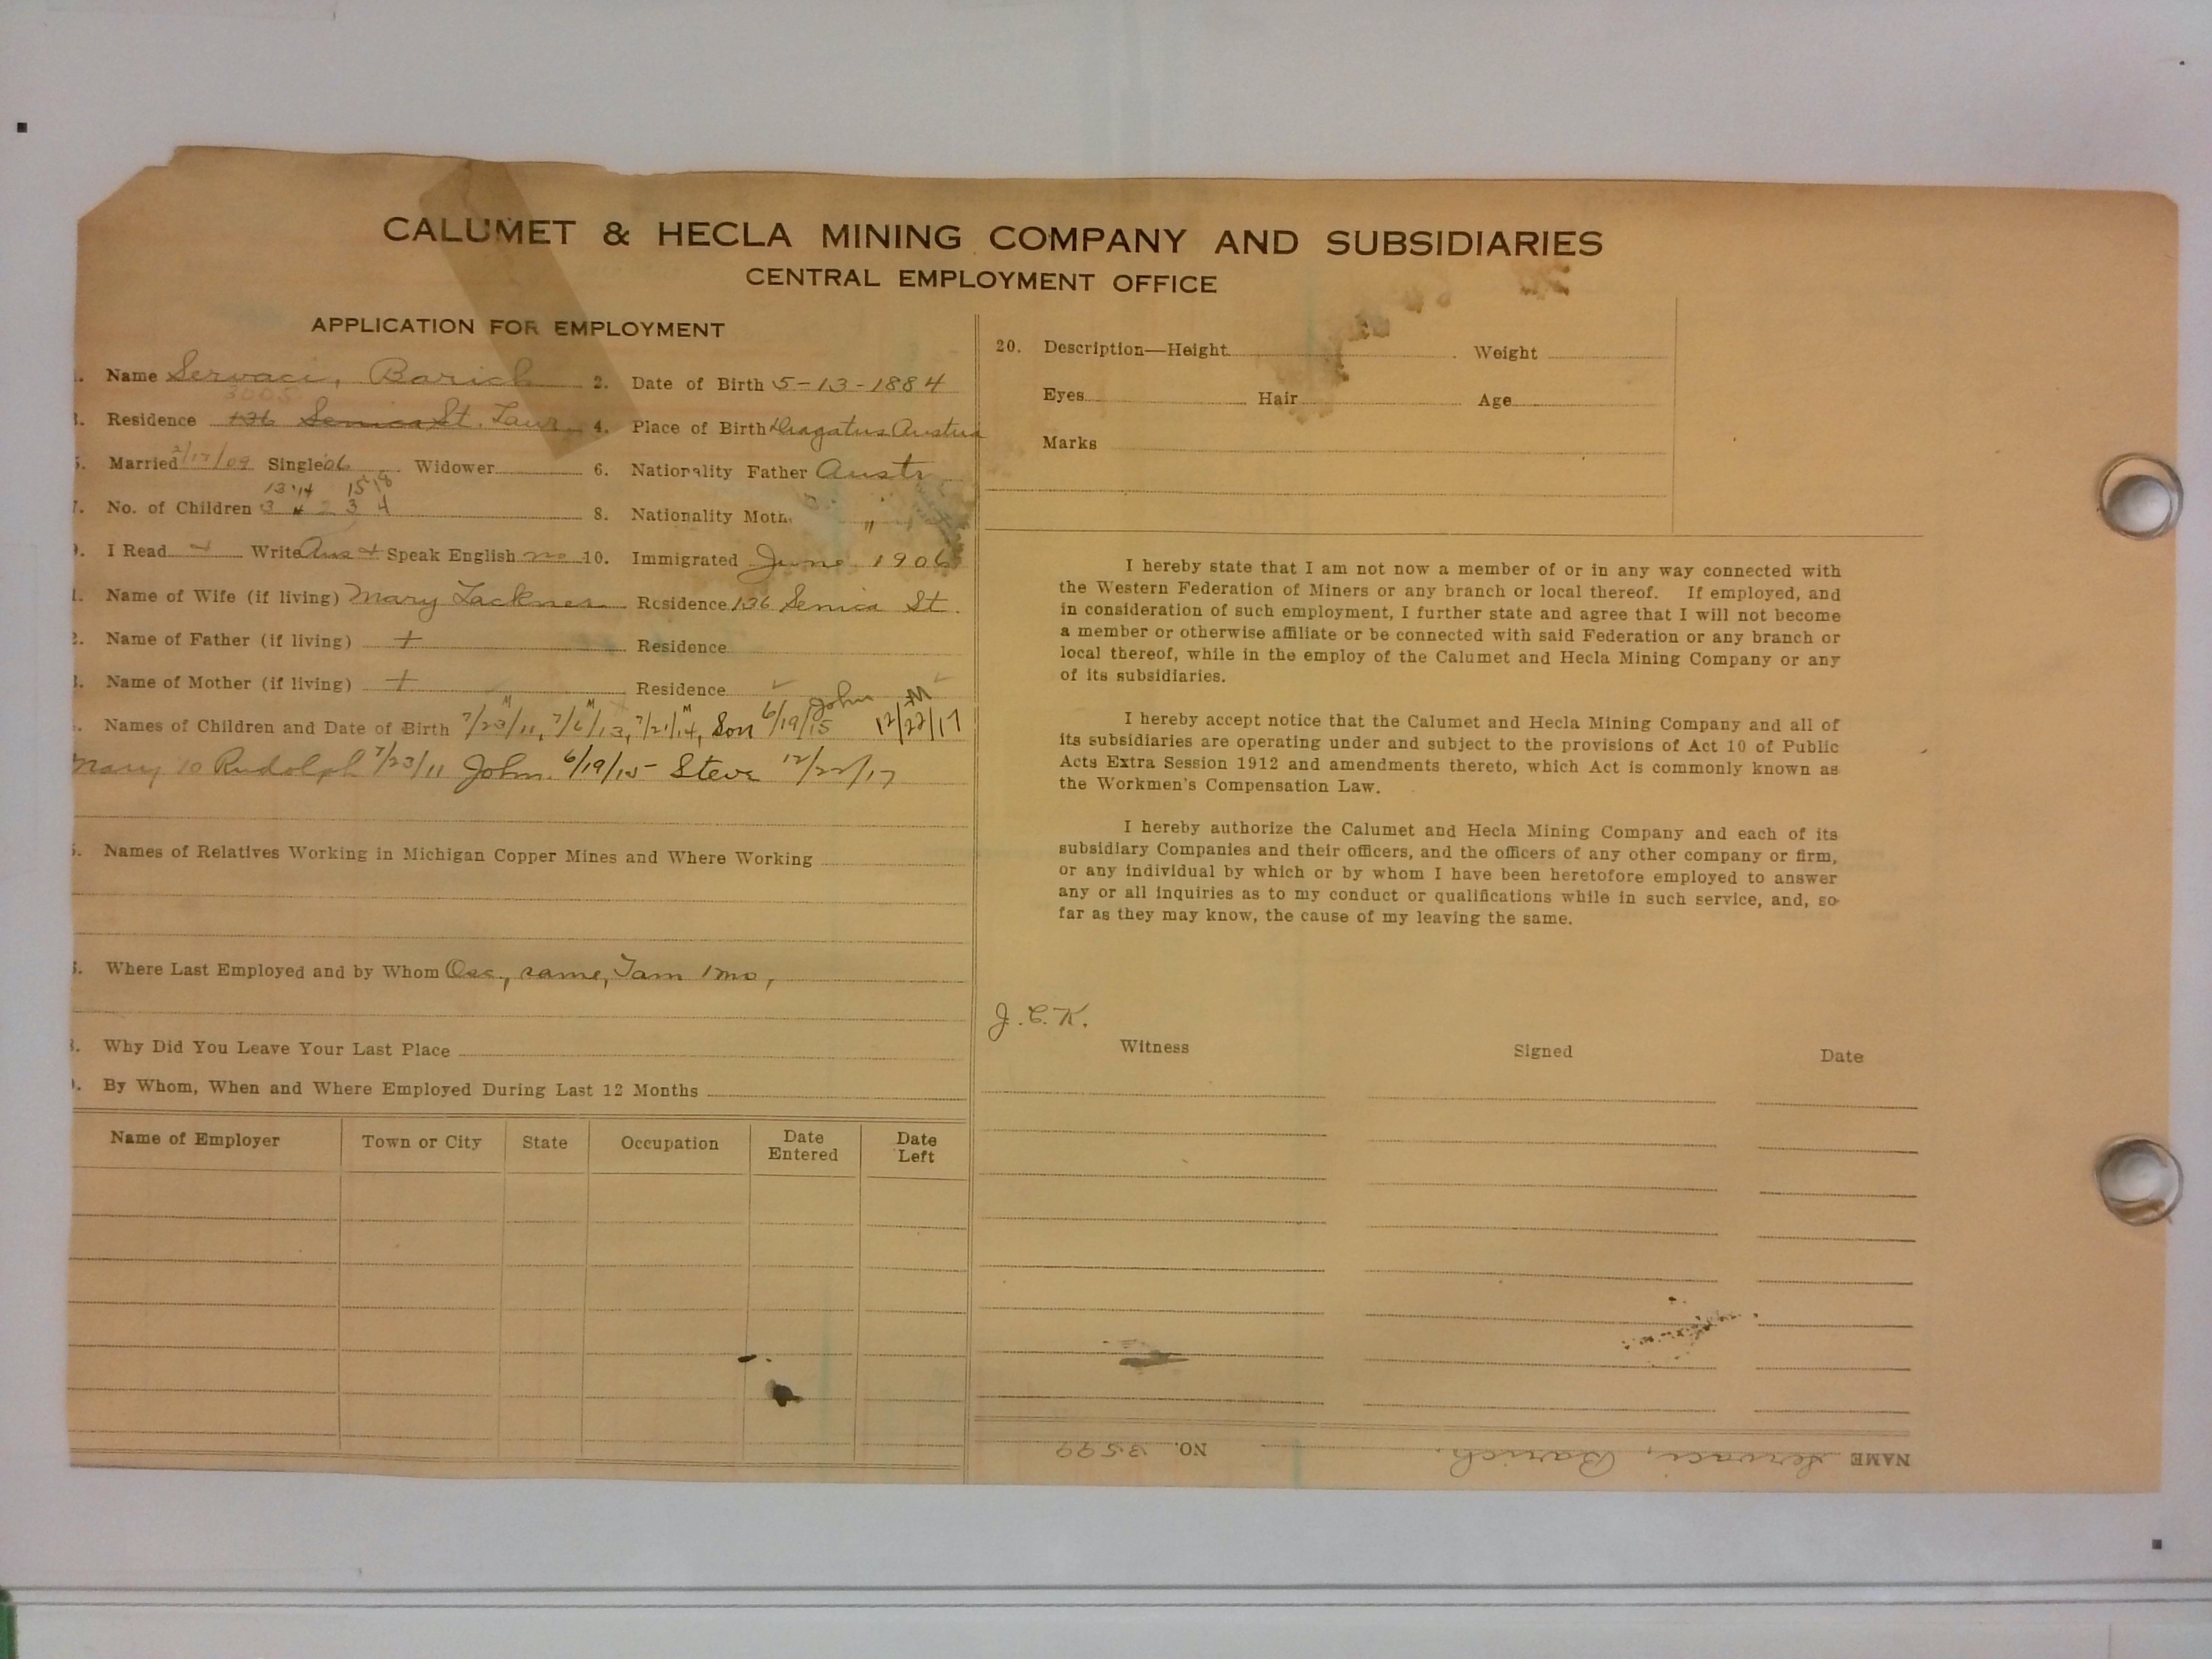 CALUMET & HECLA MINING COMPANY AND SUBSIDIARIES
CENTRAL EMPLOYMENT OFFICE
APPLICATION FOR EMPLOYMENT
Name Servaci, Barich 2. Date of Birth 5-13-1884
3005
Residence 136 Senica St. Laur. 4. Place of Birth Dragatus Austria
Married 2/17/09 Single 06 Widower 6. Nationality Father Austr
13 14 15 18
No. of Children 3 4 3 4 8. Nationality Moth. "
I Read + Write Aus + Speak English no 10. Immigrated June 1906
Name of Wife (if living) Mary Lackner Residence 136 Senica St.
Name of Father (if living) + Residence
Name of Mother (if living) + Residence
M M M John M
Names of Children and Date of Birth 7/23/11, 7/6/13, 7/21/14, Son 6/19/15 12/22/17
Mary 10 Rudolph 7/23/11 John 6/19/15 Steve 12/22/17
Names of Relatives Working in Michigan Copper Mines and Where Working
Where Last Employed and by Whom Osc., same, Tam 1 mo,
Why Did You Leave Your Last Place
By Whom, When and Where Employed During Last 12 Months
Name of Employer Town or City State Occupation Date Entered Date Left
20. Description—Height Weight
Eyes Hair Age
Marks
I hereby state that I am not now a member of or in any way connected with
the Western Federation of Miners or any branch or local thereof. If employed, and
in consideration of such employment, I further state and agree that I will not become
a member or otherwise affiliate or be connected with said Federation or any branch or
local thereof, while in the employ of the Calumet and Hecla Mining Company or any
of its subsidiaries.
I hereby accept notice that the Calumet and Hecla Mining Company and all of
its subsidiaries are operating under and subject to the provisions of Act 10 of Public
Acts Extra Session 1912 and amendments thereto, which Act is commonly known as
the Workmen's Compensation Law.
I hereby authorize the Calumet and Hecla Mining Company and each of its
subsidiary Companies and their officers, and the officers of any other company or firm,
or any individual by which or by whom I have been heretofore employed to answer
any or all inquiries as to my conduct or qualifications while in such service, and, so
far as they may know, the cause of my leaving the same.
J.C.K.
Witness Signed Date
NAME Servaci, Barich. NO. 3599